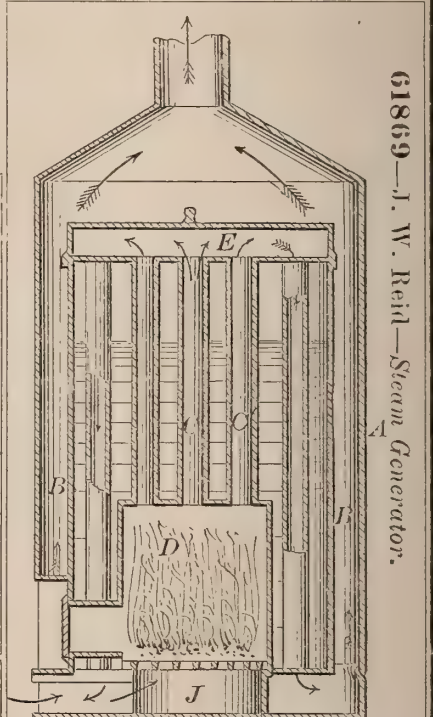 61869—J. W. Reid—Steam Generator.
E
C
C
A
B
B
D
J